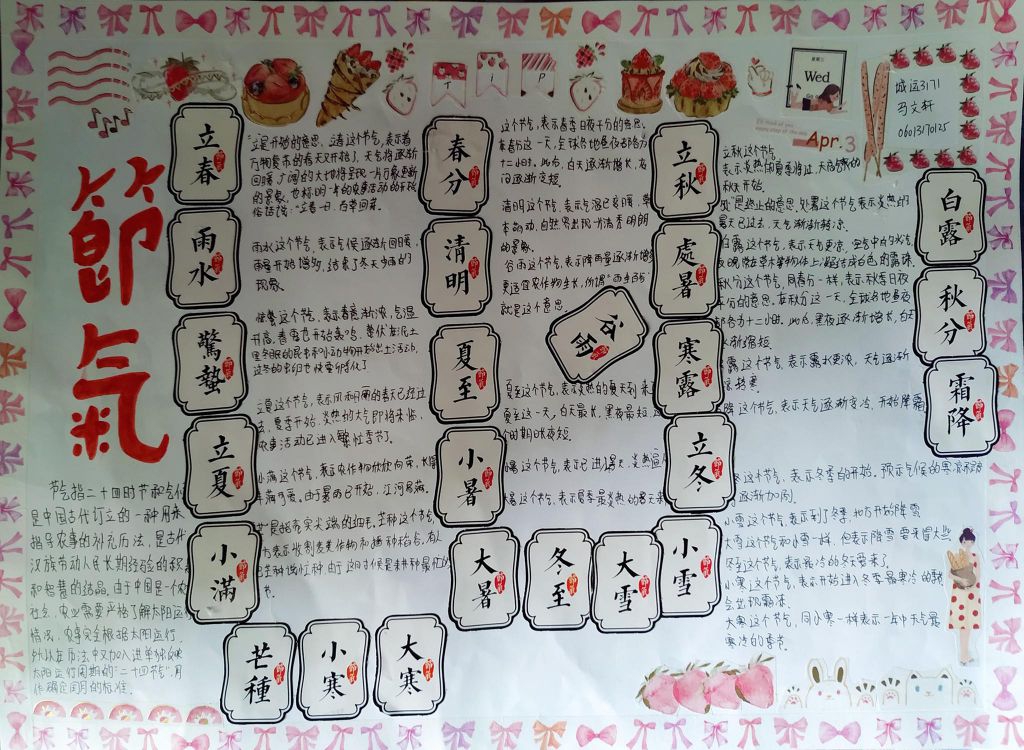 節氣
TiP
Wed
Apr.3
城运3171
马文轩
06013170125
立春
雨水
驚蟄
立夏
小滿
芒種
小寒
大寒
春分
清明
谷雨
夏至
小暑
大暑
冬至
大雪
小雪
立秋
處暑
寒露
立冬
白露
秋分
霜降
节气指二十四时节和气候
是中国古代订立的一种用来
指导农事的补充历法，是古代
汉族劳动人民长期经验的积累
和智慧的结晶。由于中国是一个农
社会，农业需要严格了解太阳运
情况，农事完全根据太阳运行，
所以在历法中又加入进单独反映
太阳运行周期的"二十四节气"，用
作确定闰月的标准。
"立是开始的意思，立春这个节气，表示着
万物复苏的春天又开始了，天气将逐渐
回暖
的景象，也标明一年的农事活动的开始
俗话说："立春一日，百草回芽。
雨水这个节气，表示气候逐渐回暖，
雨量开始增多，结束了冬天少雨的
现象。
惊蛰这个节气，表示春意渐浓，气温
升高，春雷也开始轰鸣，蛰伏在泥土
里冬眠的昆虫和小动物开始出土活动，
过冬的虫卵也快要孵化了
立夏这个节气，表示风和日丽的春天已经过
去，夏季开始，炎热的天气即将来临，
农事活动已进入繁忙季节了。
小满这个节气，表示农作物欣欣向荣，
由于暑热已开始，江河易满。
芒是指禾实尖端的细毛，芒种这个节气，
为表示收割麦类作物和播种稻谷，有人
把芒种说忙种，由于这时候是耕种最忙的
节。
这个节气，表示春季日夜平分的意思。
在春分这一天，全球各地昼夜都
十二小时。此后，白天逐渐增长，夜
间逐渐变短。
清明这个节气，表示气温已变暖，草
木萌动，自然界出现一片清秀明朗
的景象。
谷雨这个节气，表示降雨量逐渐增多
更适宜农作物生长，所谓"雨生百谷"
就是这个意思。
夏至这个节气，表示炎热的夏天到来
夏至这一天，白天最长，黑夜最短，这
个时期昼长夜短。
小暑这个节气，表示已进入暑天，炎热逼人
大暑这个节气，表示夏季最炎热的暑天来
立秋这个节气，
表示炎热的夏季将过，天高气爽的
秋天开始。
处是终止的意思。处暑这个节气表示炎热的
暑天已过去，天气渐渐转凉。
白露这个节气，表示天气更凉，空气中的水汽
夜晚常在草木等物体上凝结成白色的露珠。
秋分这个节气，同春分一样，表示秋季日夜
平分的意思。在秋分这一天，全球各地昼夜
都各为十二小时。此后，黑夜逐渐增长，白天
逐渐缩短。
寒露这个节气，表示露水更浓，天气逐渐

霜降这个节气，表示天气逐渐变冷，开始降霜
立冬这个节气，表示冬季的开始，预示气候的寒凉
逐渐加剧。
小雪这个节气，表示到了冬季，北方开始降雪
大雪这节气和小雪一样，但表示降雪要来得大些
冬至这个节气，表示最冷的冬天要来了
小寒这个节气，表示开始进入冬季最寒冷的
会出现霜冻。
大寒这个节气，同小寒一样表示一年中天气最
寒冷的季节。